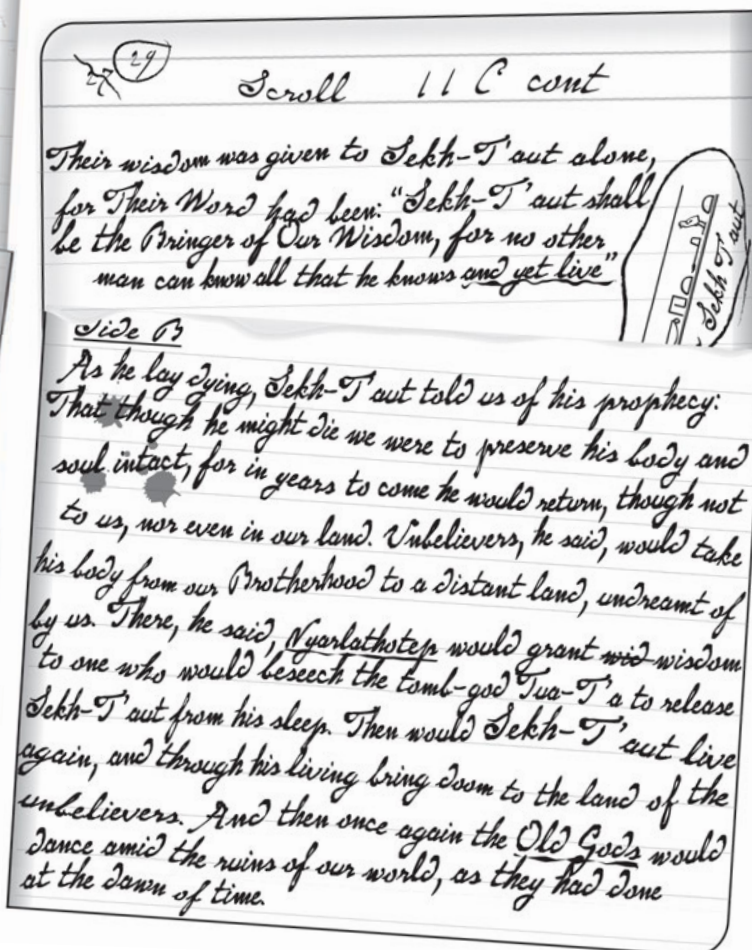 27 29
Scroll 11 C cont
Their wisdom was given to Sekh-T'aut alone,
for Their Word had been: "Sekh-T'aut shall
be the Bringer of Our Wisdom, for no other
man can know all that he knows and yet live"
Sekh-T'aut
Side B
As he lay dying, Sekh-T'aut told us of his prophecy:
That though he might die we were to preserve his body and
soul intact, for in years to come he would return, though not
to us, nor even in our land. Unbelievers, he said, would take
his body from our Brotherhood to a distant land, undreamt of
by us. There, he said, Nyarlathotep would grant wid wisdom
to one who would beseech the tomb-god Tua-T'a to release
Sekh-T'aut from his sleep. Then would Sekh-T'aut live
again, and through his living bring doom to the land of the
unbelievers. And then once again the Old Gods would
dance amid the ruins of our world, as they had done
at the dawn of time.